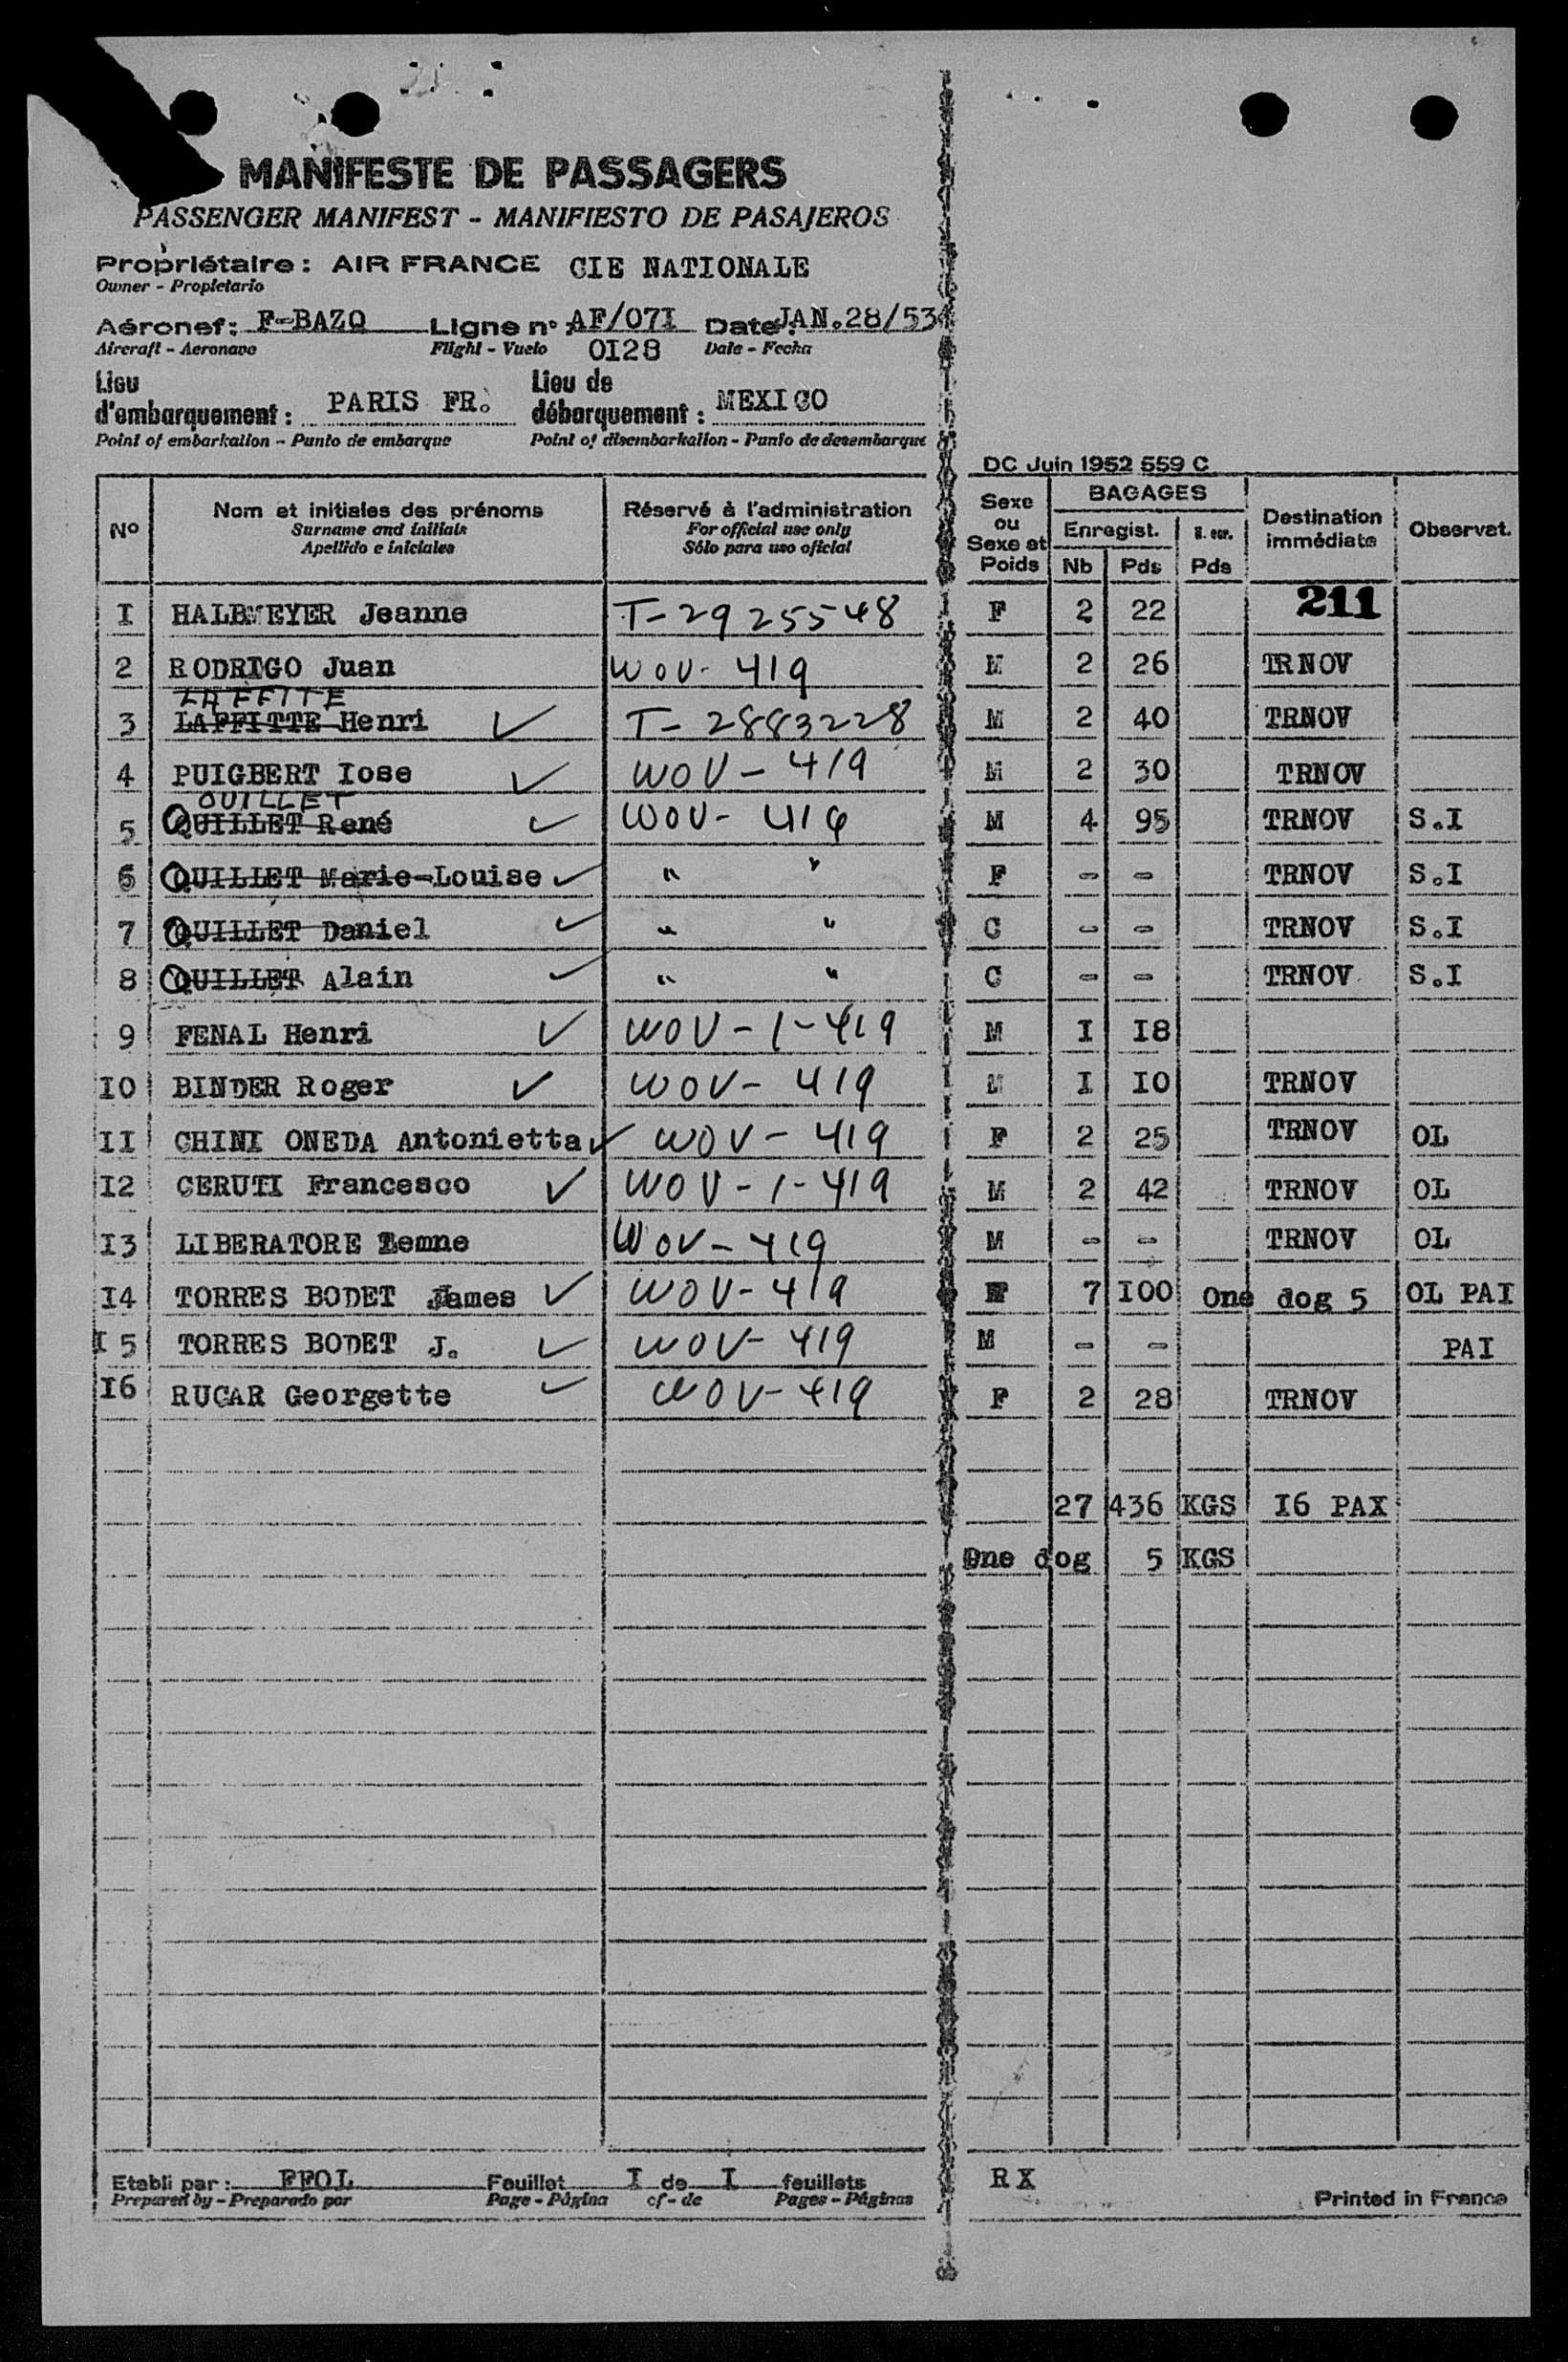 MANIFESTE DE PASSAGERS
PASSENGER MANIFEST - MANIFIESTO DE PASAJEROS
Propriétaire : AIR FRANCE CIE NATIONALE
Owner - Propietario
Aéronef : F-BAZQ Ligne n° : AF/07I Date : JAN.28/53
Aircraft - Aeronave Flight - Vuelo 0I28 Date - Fecha
Lieu d'embarquement : PARIS FR. Lieu de débarquement : MEXICO
Point of embarkation - Punto de embarque Point of disembarkation - Punto de desembarque
DC Juin 1952 559 C
N° Nom et initiales des prénoms Réservé à l'administration Sexe ou Sexe et Poids BAGAGES Destination immédiate Observat.
Surname and initials For official use only Enregist.
Apellido e iniciales Sólo para uso oficial Nb Pds Pds
211
I HALBMEYER Jeanne T-2925548 F 2 22
2 RODRIGO Juan WOV-419 M 2 26 TRNOV
LAFFITE
3 LAFFITTE Henri T-2883228 M 2 40 TRNOV
4 PUIGBERT Iose WOV-419 M 2 30 TRNOV
OUILLET
5 QUILLET René WOV-419 M 4 95 TRNOV S.I
6 QUILLET Marie-Louise " " F - - TRNOV S.I
7 QUILLET Daniel " " C - - TRNOV S.I
8 QUILLET Alain " " C - - TRNOV S.I
9 FENAL Henri WOV-1-419 M I I8
I0 BINDER Roger WOV-419 M I I0 TRNOV
II CHINI ONEDA Antonietta WOV-419 F 2 25 TRNOV OL
I2 CERUTI Francesco WOV-1-419 M 2 42 TRNOV OL
I3 LIBERATORE Zemne WOV-419 M - - TRNOV OL
I4 TORRES BODET James WOV-419 7 I00 One dog 5 OL PAI
I5 TORRES BODET J. WOV-419 M - - PAI
I6 RUCAR Georgette WOV-419 F 2 28 TRNOV
27 436 KGS I6 PAX
One dog 5 KGS
Etabli par : FFOL Feuillet I de I feuillets RX
Prepared by - Preparado por Page - Página of - de Pages - Páginas Printed in France